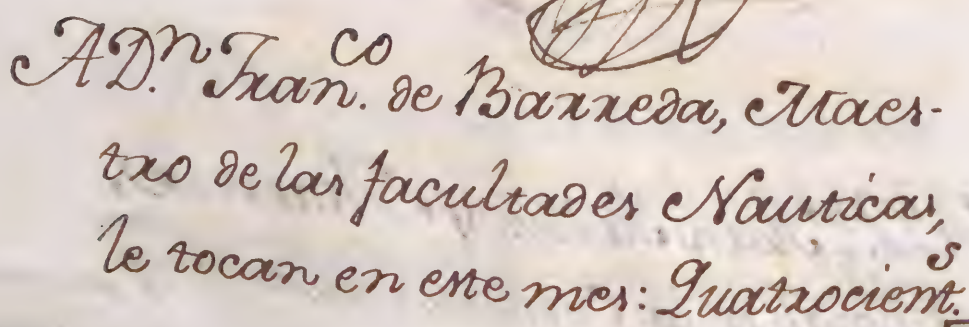 A D.n Fran.co de Barreda, Maes-
tro de las facultades Nauticas,
le tocan en este mes: Quatrocient.s